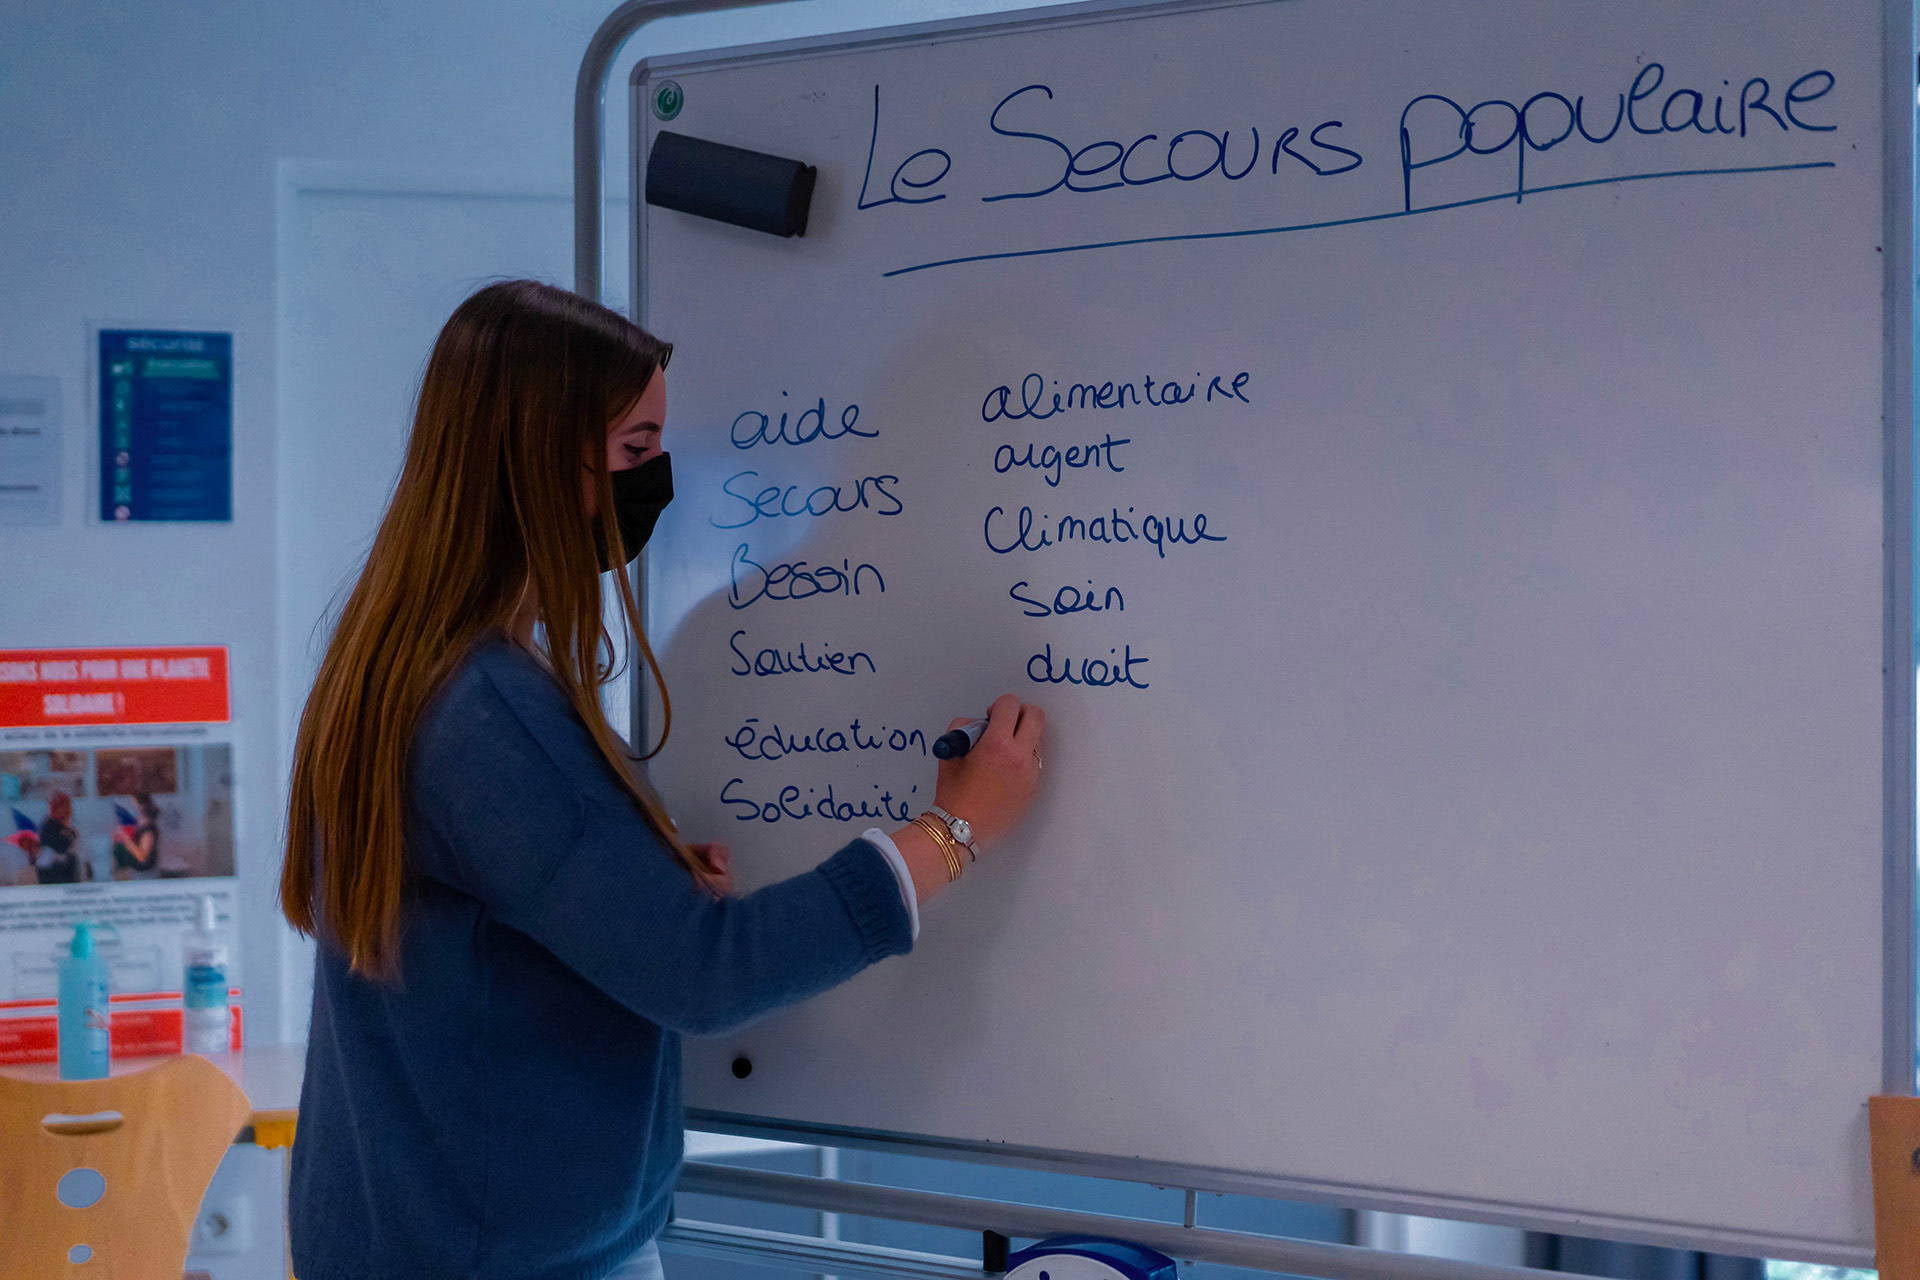 Le Secours populaire
aide
Secours
Besoin
Soutien
éducation
Solidarité
alimentaire
argent
Climatique
Soin
droit
sécurité
évacuation
SONS NOUS POUR UNE PLANETE
SOLIDAIRE !